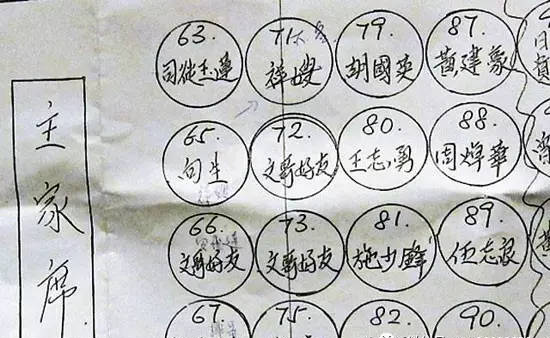 63.
司徒玉蓮
71.
祥嫂
79.
胡國英
87.
黃建豪
65.
向生
72.
文新好友
80.
王志勇
88.
周焯華
66.
文新好友
73.
文新好友
81.
施少鋒
89.
任志良
67.
75.
82.
90.
主
家
席